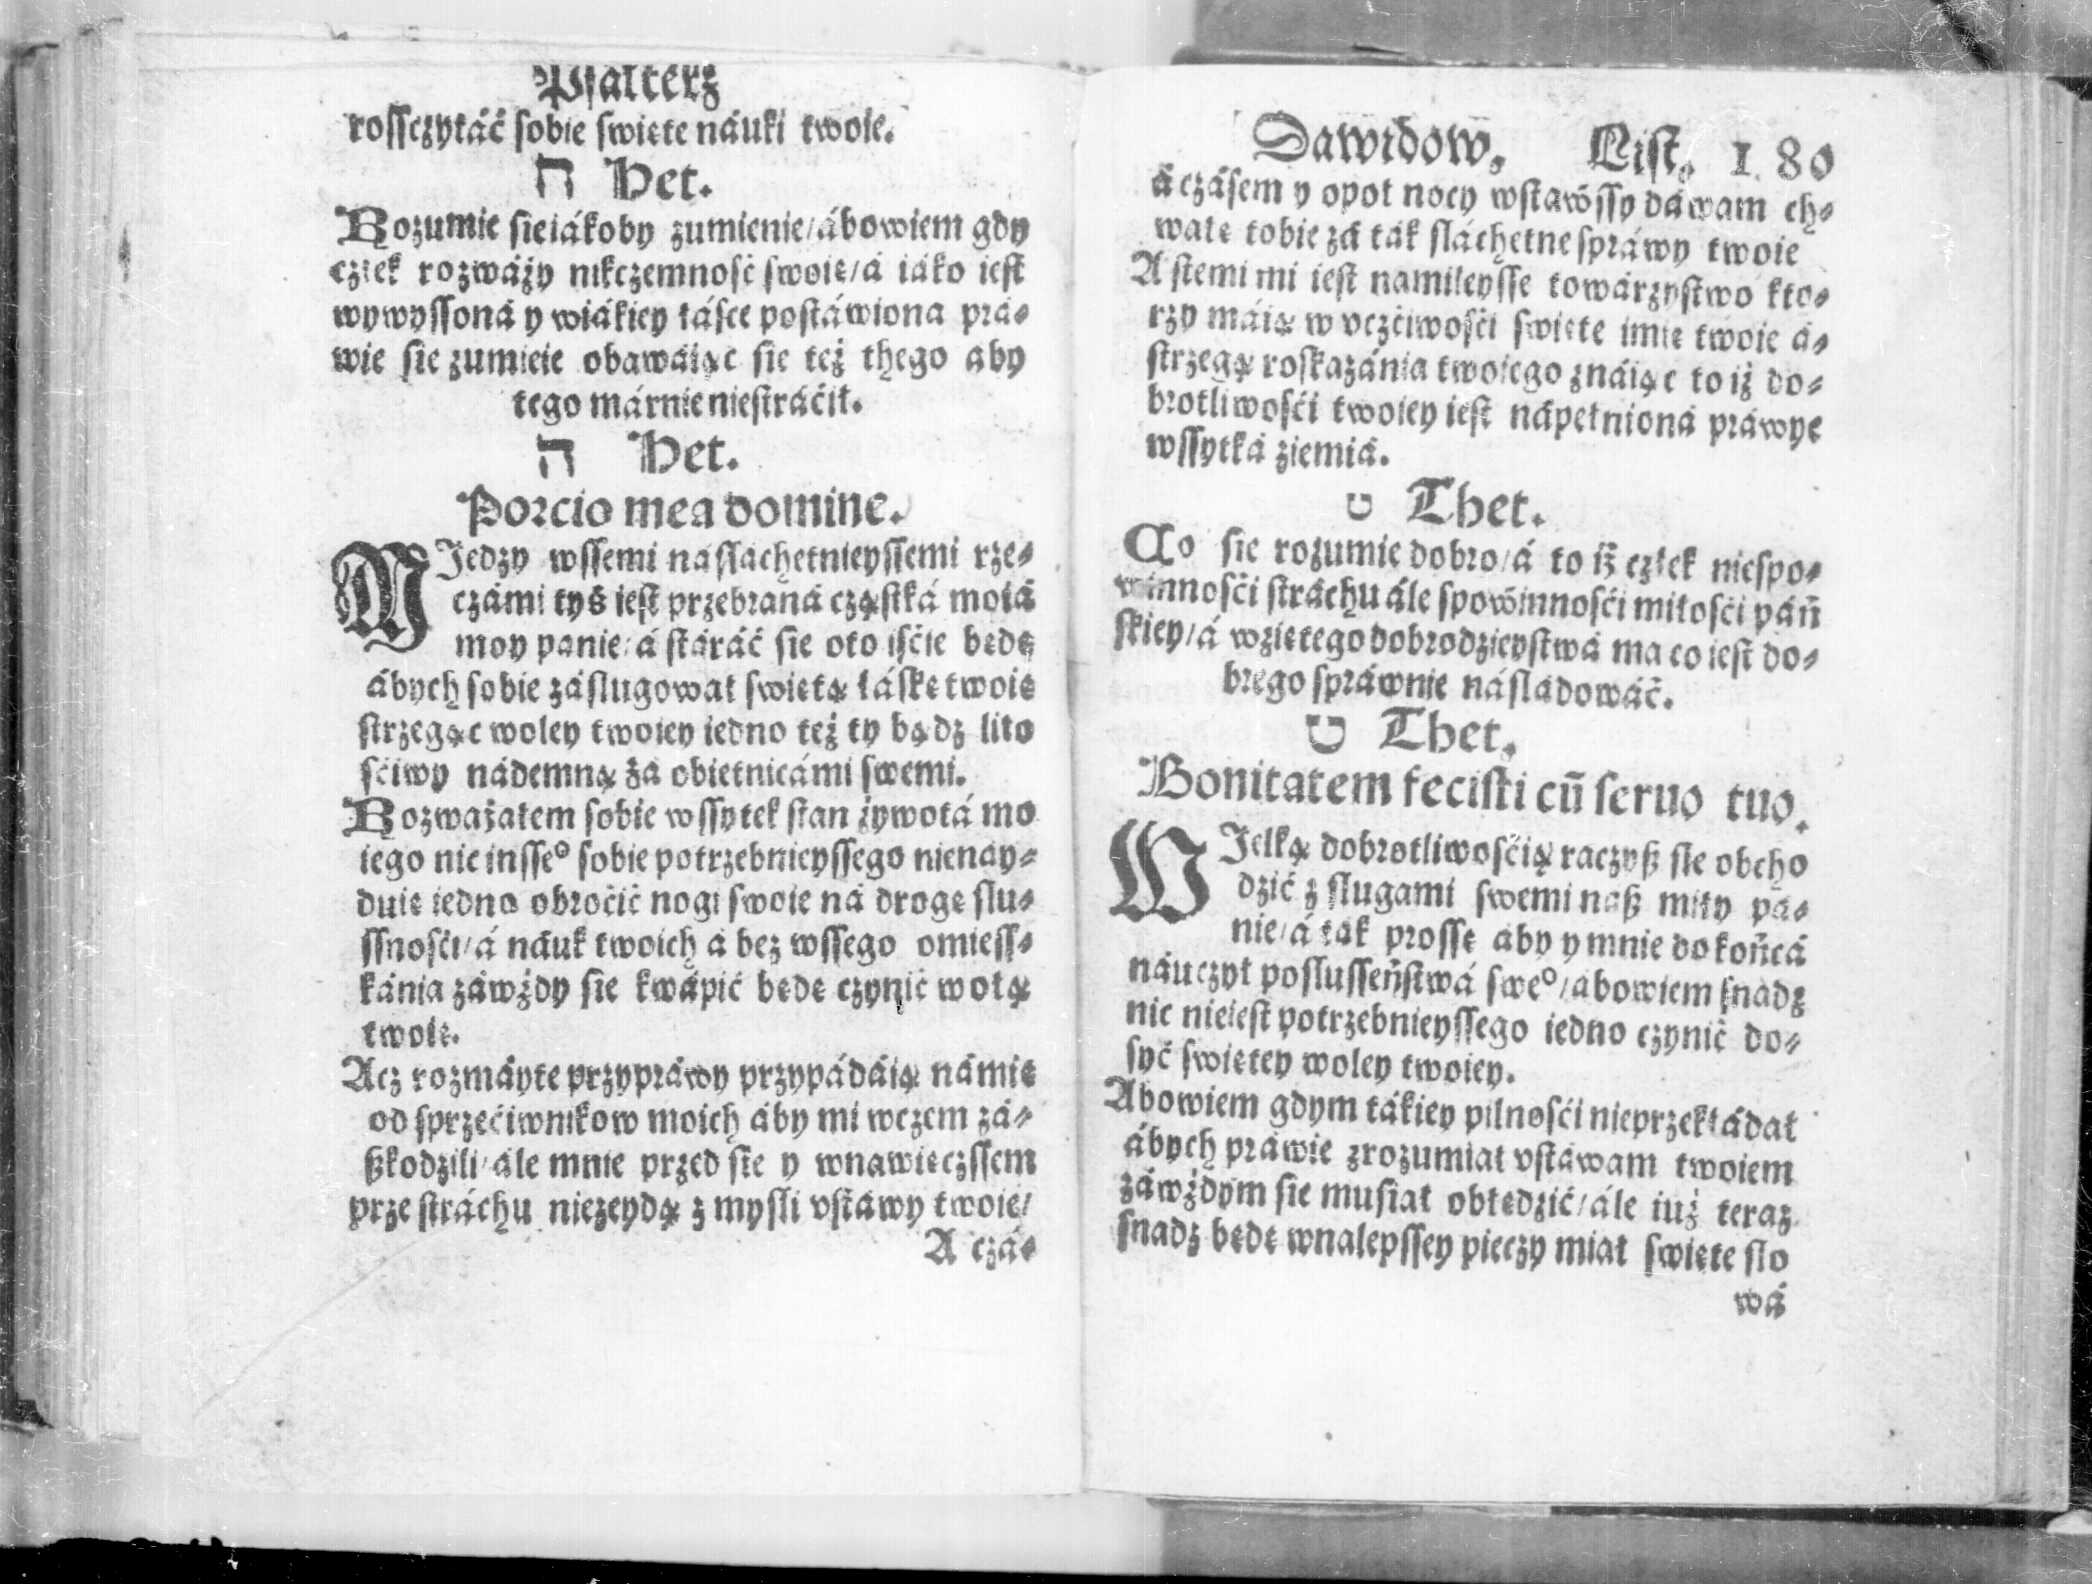 Psalterz
rossczytáć sobie swięte náuki twoie.
ח Het.
Rozumie sie iákoby zumienie/ ábowiem gdy
człek rozwáży nikczemność swoię/ á iáko iest
wywyssoná y wiákiey łásce postáwiona prá⸗
wie sie zumieie obawáiąc sie też thego aby
tego márnie niestráćił.
ח Het.
Porcio mea domine.
MJedzy wssemi naslachetnieyssemi rze⸗
czámi tyś iest przebraná cząstká moiá
moy panie/ á stáráć sie oto iśćie będę
ábych sobie zásługował swiętą łáskę twoię
strzegąc woley twoiey iedno też ty bądz lito
śćiwy nádemną zá obietnicámi swemi.
Rozważałem sobie wssytek stan żywotá mo
iego nic insse° sobie potrzebnieyssego nienay⸗
duię iedno obroćić nogi swoie ná drogę slu⸗
ssnośći/ á náuk twoich á bez wssego omiess⸗
kánia záwżdy sie kwápić będę czynić wolą
twoię.
Acz rozmáyte przypráwy przypádáią námię
od sprzećiwnikow moich áby mi wczem zá⸗
ßkodzili/ ále mnie przed sie y wnawięczssem
prze stráchu niezeydą z mysli vstáwy twoie/
A czá⸗
Dawidow. List. 180
á czásem y opoł nocy wstawssy dáwam ch⸗
wałę tobie zá ták sláchetne spráwy twoie
A stemi mi iest namileysse towárzystwo kto⸗
rzy máią w vczćiwośći swięte imię twoie á⸗
strzegą roskazánia twoiego znáiąc to iż do⸗
brotliwośći twoiey iest nápełnioná práwye
wssytká ziemiá.
ט Thet.
Co sie rozumie dobro/ á to iż człek niespo⸗
winnośći stráchu ále spowinnośći miłośći páń
skiey/ á wziętego dobrodzieystwá ma co iest do⸗
brego spráwnie násládowáć.
ט Thet.
Bonitatem fecisti cū seruo tuo.
WJelką dobrotliwośćią raczyß sie obcho
dzić z slugami swemi naß miły pá⸗
nie/ á ták prossę áby y mnie do końcá
náuczył poslusseństwá swe°/ ábowiem snadz
nic nieiest potrzebnieyssego iedno czynić do⸗
syć swiętey woley twoiey.
Abowiem gdym tákiey pilnośći nieprzekłádał
ábych práwie zrozumiał vstáwam twoiem
záwżdym sie musiał obłędzić/ ále iuż teraz
snadz będę wnalepssey pieczy miał swięte slo
wá